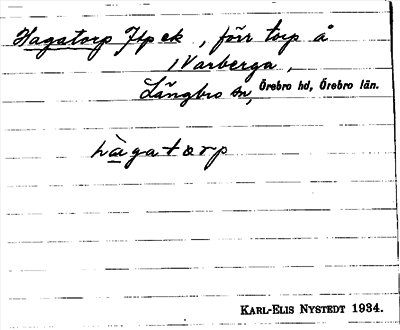 Hagatorp Jfp ek, förr torp å
1 Varberga,
Långbro sn, Örebro hd, Örebro län.
hàgatorp
KARL-ELIS NYSTEDT 1934.